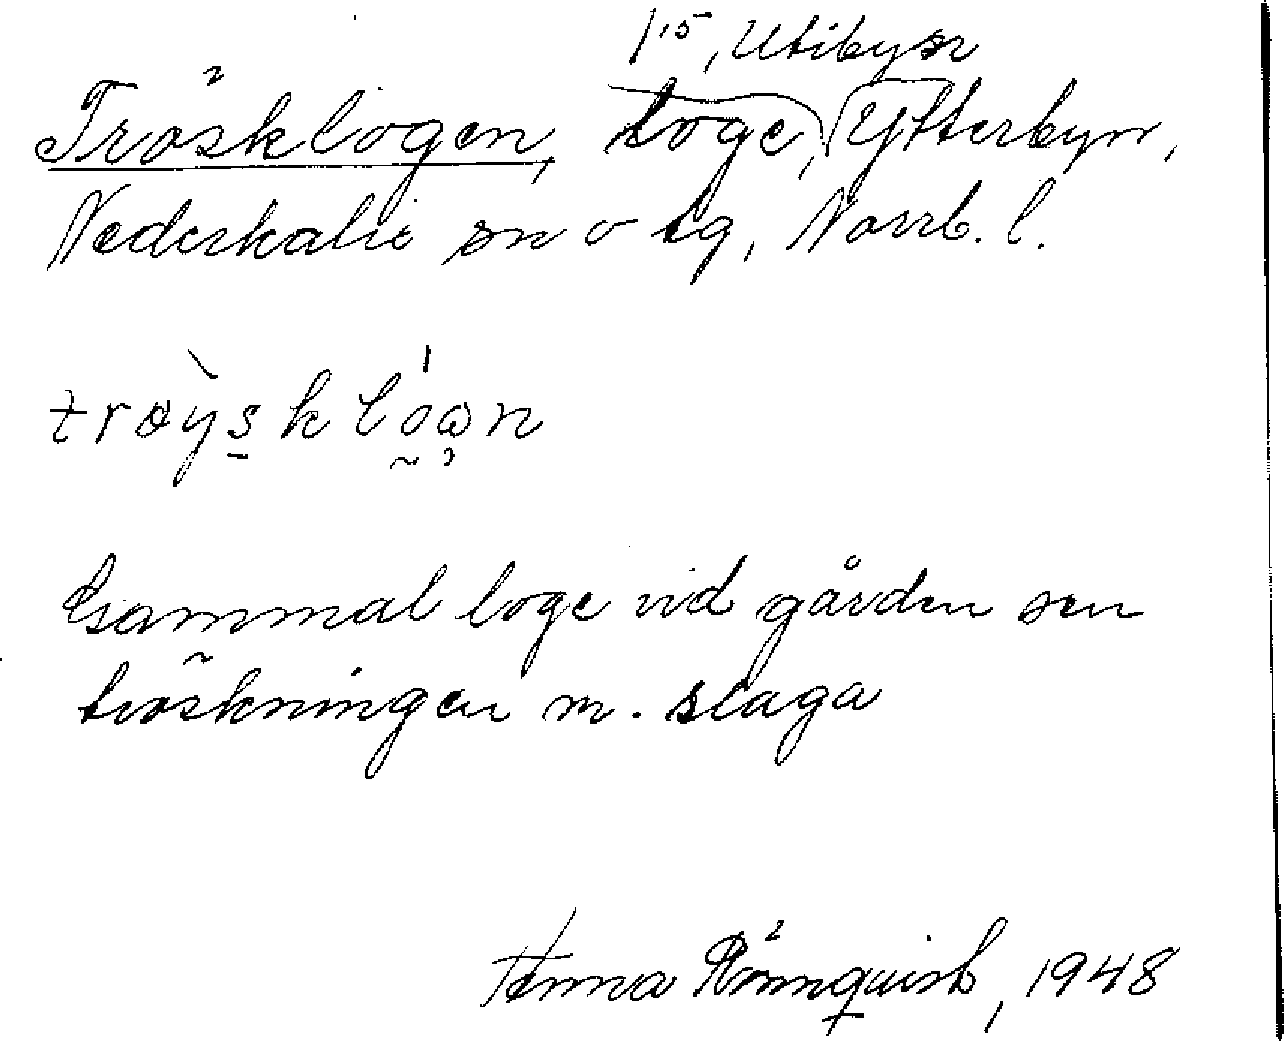 1:5, Utibyn
Trösklogen, Loge, Ytterbyn,
Nederkalix sn o tg, Norrb. l.
trøỳsklóɷn
Gammal loge vid gården sen
tröskningen m. slaga
Anna Rönnquist, 1948